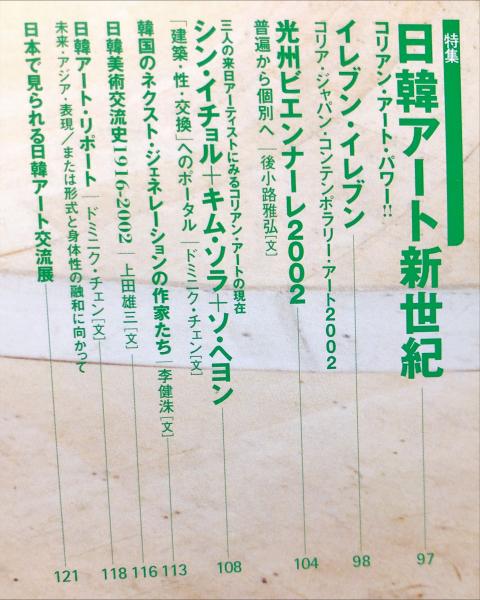 特集
日韓アート新世紀
コリアン・アート・パワー!!
97
イレブン・イレブン
コリア・ジャパン・コンテンポラリー・アート2002
98
光州ビエンナーレ2002
普遍から個別へ|後小路雅弘[文]
104
三人の来日アーティストにみるコリアン・アートの現在
シン・イチョル+キム・ソラ+ソ・ヘヨン
「建築・性・交換」へのポータル|ドミニク・チェン[文]
108
韓国のネクスト・ジェネレーションの作家たち|李健洙[文]
113
日韓美術交流史1916-2002|上田雄三[文]
116
日韓アート・リポート|ドミニク・チェン[文]
未来・アジア・表現/または形式と身体性の融和に向かって
118
日本で見られる日韓アート交流展
121